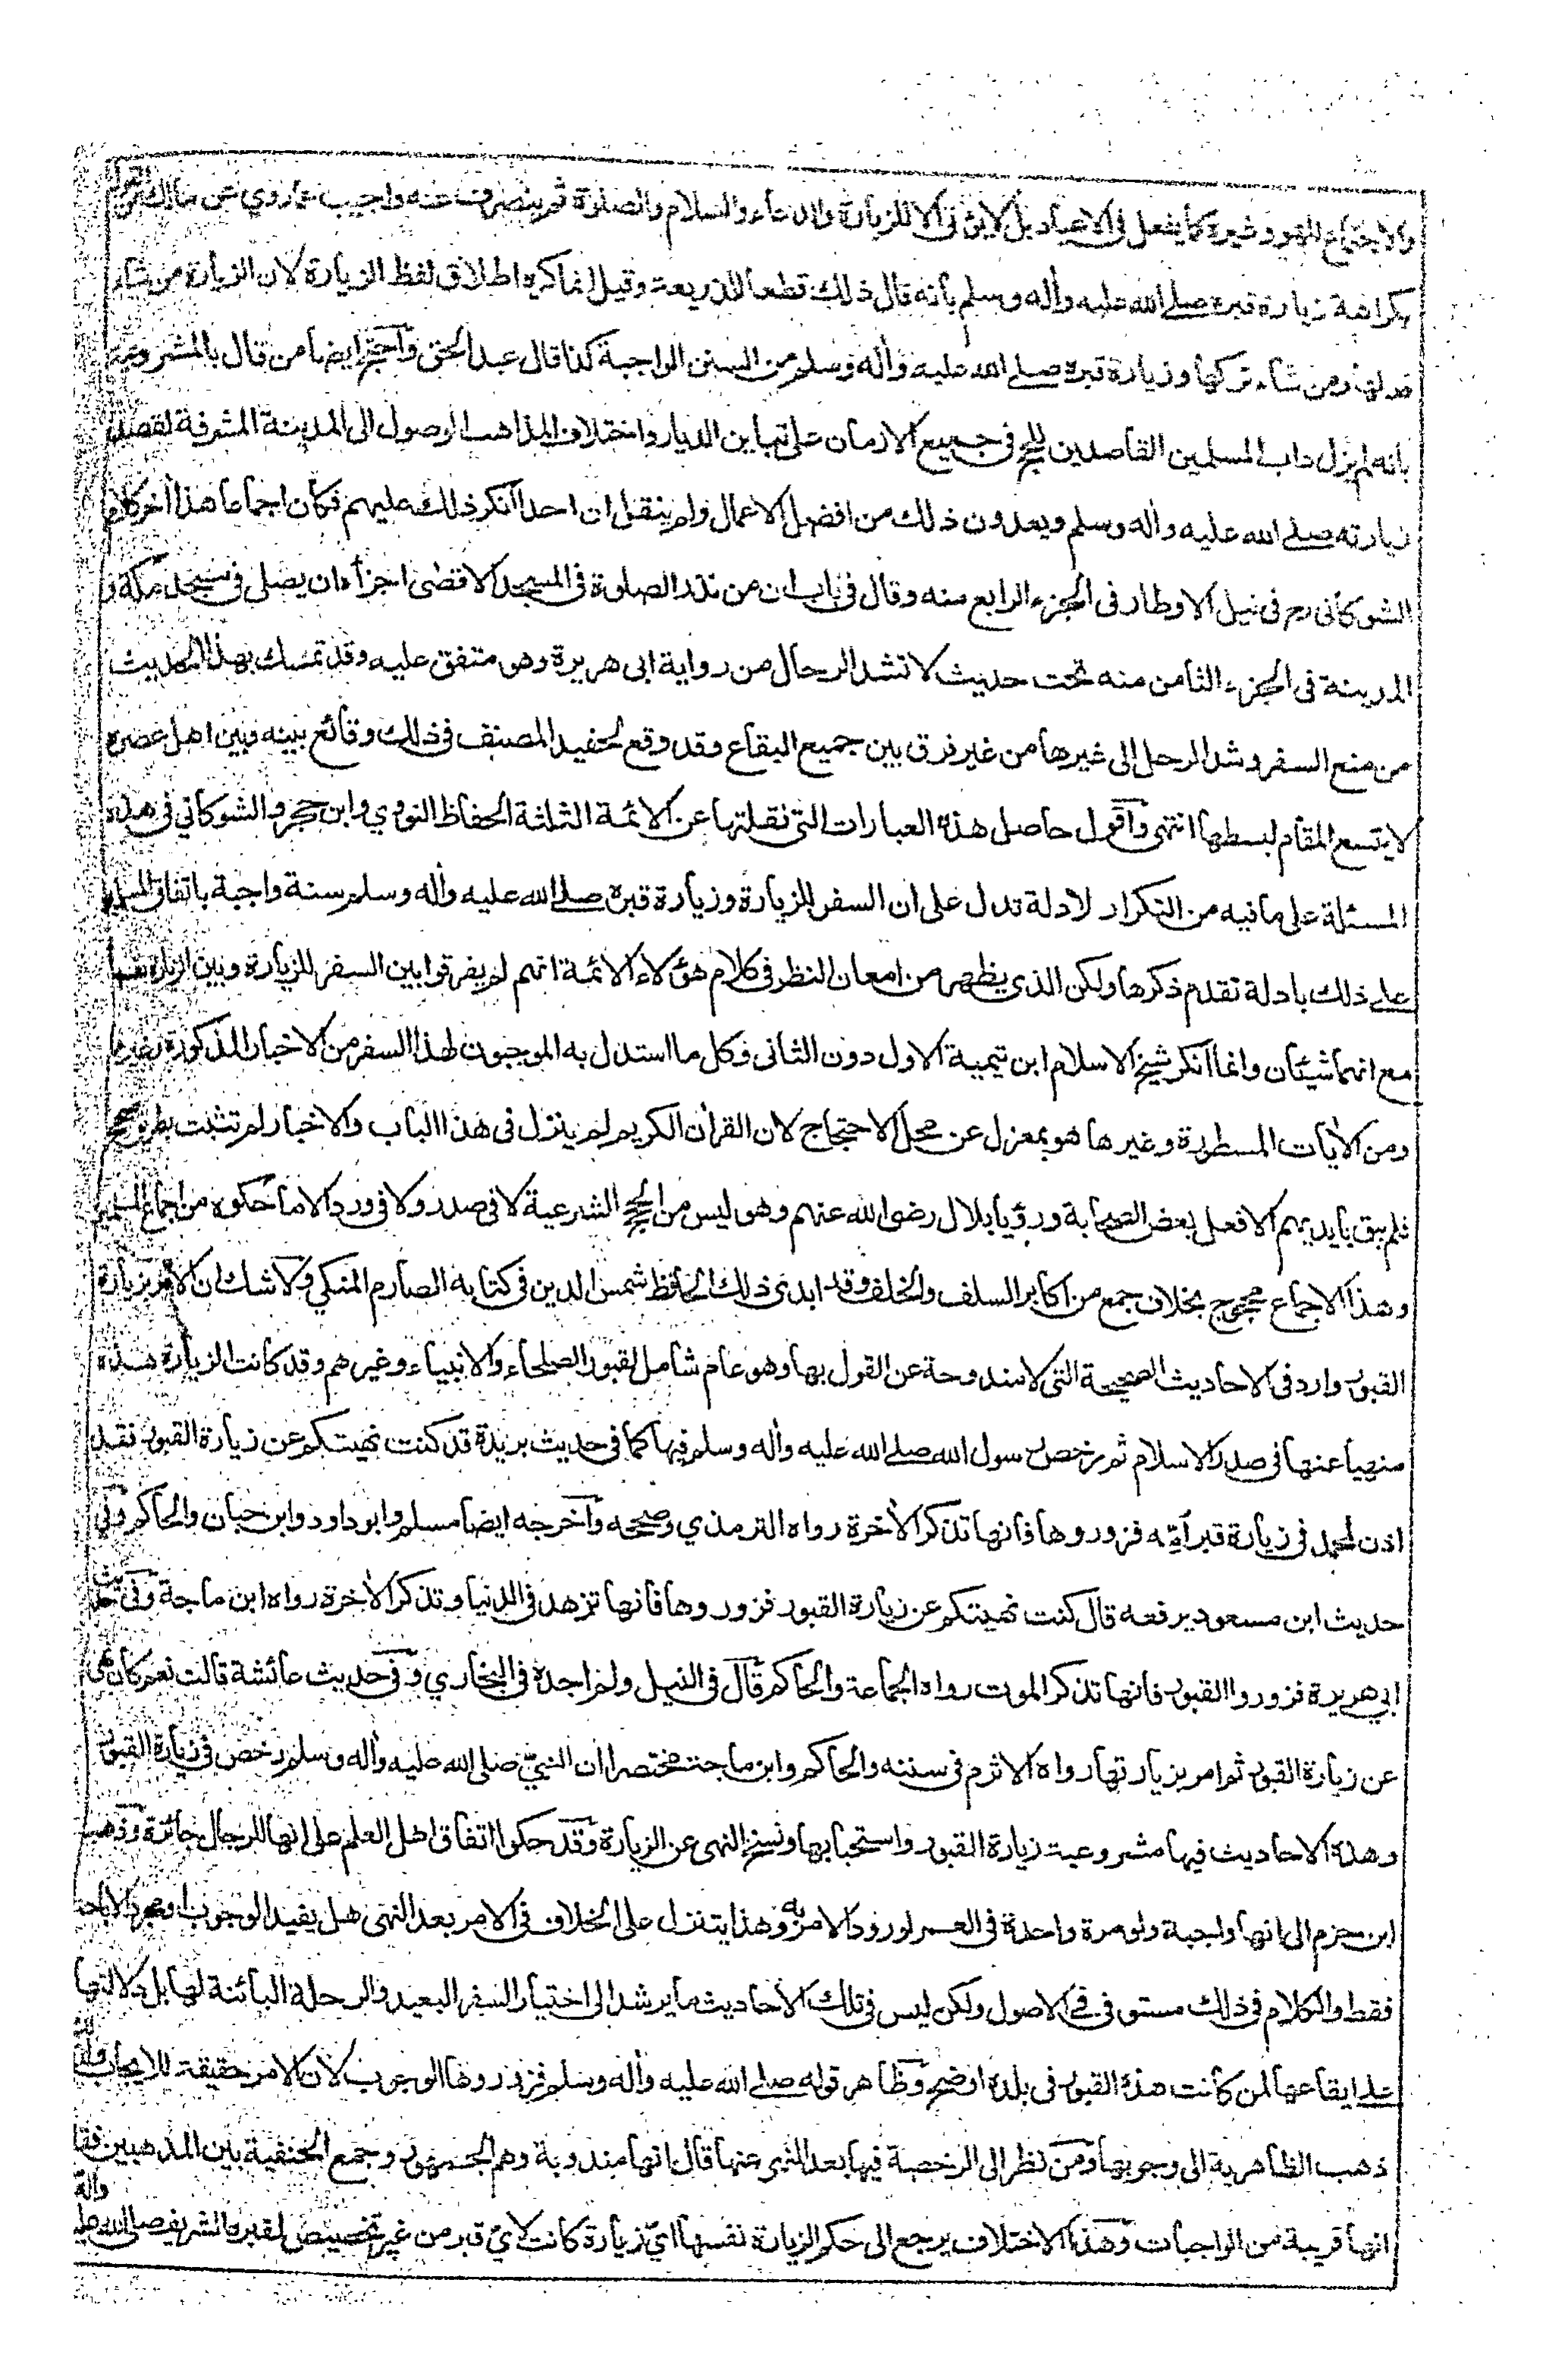 والاجتماع للهو وغيره كما يفعل فى الاعياد بل لا يؤتى الا للزيارة والدعاء والسلام والصلوة ثم ينصرف عنه واجيب عما روي عن مالك من القول
بكراهة زيارة قبره صلے الله عليه وأله وسلم بأنه قال ذلك قطعا للذريعة وقيل انما كره اطلاق لفظ الزيارة لان الزيارة من شاء
فعلها ومن شاء تركها وزيارة قبره صلے الله عليه وأله وسلم من السنن الواجبة كذا قال عبد الحق وآحتج ايضا من قال بالمشروعية
بانه لم يزل داب المسلمين القاصدين للحج فى جميع الازمان على تباين الديار واختلاف المذاهب الوصول الى المدينة المشرفة لقصد
زيارته صلے الله عليه واله وسلم ويعدون ذلك من افضل الاعمال ولم ينقل ان احدا انكر ذلك عليهم فكان اجماعا هذا أخر كلام
الشوكانى رح فى نيل الاوطار فى الجزء الرابع منه وقال فى باب ان من نذر الصلوة فى المسجد الاقصى اجزأه ان يصلى فى مسجد مكة و
المدينة فى الجزء الثامن منه تحت حديث لا تشد الرحال من رواية ابى هريرة وهو متفق عليه وقد تمسك بهذا الحديث
من منع السفر وشد الرحل الى غيرها من غير فرق بين جميع البقاع وقد وقع لحفيد المصنف فى ذلك وقائع بينه وبين اهل عصره
لا يتسع المقام لبسطها انتهى وآقول حاصل هذه العبارات التى نقلتها عن الائمة الثلثة الحفاظ النووي وابن حجر والشوكاني فى هذه
المسئلة على ما فيه من التكرار لادلة تدل على ان السفر للزيارة وزيارة قبره صلے الله عليه وأله وسلم سنة واجبة باتفاق المسلمين
علے ذلك بادلة تقدم ذكرها ولكن الذى يظهر من امعان النظر فى كلام هؤلاء الائمة انهم لم يفرقوا بين السفر للزيارة وبين الزيارة نفسها
مع انهما شيئان وانما انكر شيخ الاسلام ابن تيمية الاول دون الثانى وكل ما استدل به الموجبون لهذا السفر من الاخبار المذكورة وغيرها
ومن الأيات المسطورة وغيرها هو بمعزل عن محل الاحتجاج لان القرأن الكريم لم ينزل فى هذا الباب والاخبار لم تثبت بطريق صحيح
فلم يبق بايديهم الا فعل بعض الصحابة ورؤيا بلال رضى الله عنهم وهو ليس من الحجج الشرعية لا فى صدر ولا فى ورد الا ما حكوه من اجماع المسلمين
وهذا الاجماع محجوج بخلاف جمع من اكابر السلف والخلف وقد ابدى ذلك الحافظ شمس الدين فى كتابه الصارم المنكي ولا شك ان الامر بزيارة
القبور وارد فى الاحاديث الصحيحة التى لا مندوحة عن القول بها وهو عام شامل لقبور الصلحاء والانبياء وغيرهم وقد كانت الزيارة هذه
منهيا عنها فى صدر الاسلام ثم رخص رسول الله صلے الله عليه وأله وسلم فيها كما فى حديث بريدة قد كنت نهيتكم عن زيارة القبور فقد
اذن لمحمد فى زيارة قبر أمه فزوروها فانها تذكر الأخرة رواه الترمذي وصححه وآخرجه ايضا مسلم وابو داود وابن حبان والحاكم وفى
حديث ابن مسعود يرفعه قال كنت نهيتكم عن زيارة القبور فزوروها فانها تزهد فى الدنيا وتذكر الأخرة رواه ابن ماجة وفى حديث
ابي هريرة فزوروا القبور فانها تذكر الموت رواه الجماعة والحاكم قآل فى النيل ولم اجده فى البخاري وفى حديث عائشة قالت نعم كان نهى
عن زيارة القبور ثم امر بزيارتها رواه الاثرم فى سننه والحاكم وابن ماجة مختصرا ان النبي صلى الله عليه وأله وسلم رخص فى زيارة القبور
وهذه الاحاديث فيها مشروعية زيارة القبور واستحبابها ونسخ النهى عن الزيارة وقد حكوا اتفاق اهل العلم على انها للرجال جائزة وذهب
ابن حزم الى انها واجبة ولو مرة واحدة فى العمر لورود الامر به وهذا يتنزل على الخلاف فى الامر بعد النهى هل يفيد الوجوب او مجرد الاباحة
فقط والكلام فى ذلك مستوفى فى الاصول ولكن ليس فى تلك الأحاديث ما يرشد الى اختيار السفر البعيد والرحلة البائنة لها بل دلالتها
علے ايقاعها لمن كانت هذه القبور فى بلده اوضح وظاهر قوله صلے الله عليه وأله وسلم فزوروها الوجوب لان الامر حقيقة للايجاب
ذهب الظاهرية الى وجوبها ومن نظر الى الرخصة فيها بعد النهى عنها قال انها مندوبة وهم الجمهور وجمع الحنفية بين المذهبين فقا
انها قريبة من الواجبات وهذا الاختلاف يرجع الى حكم الزيارة نفسها اي زيارة كانت لاي قبر من غير تخصيص لقبره الشريف صلى الله عليه وأله